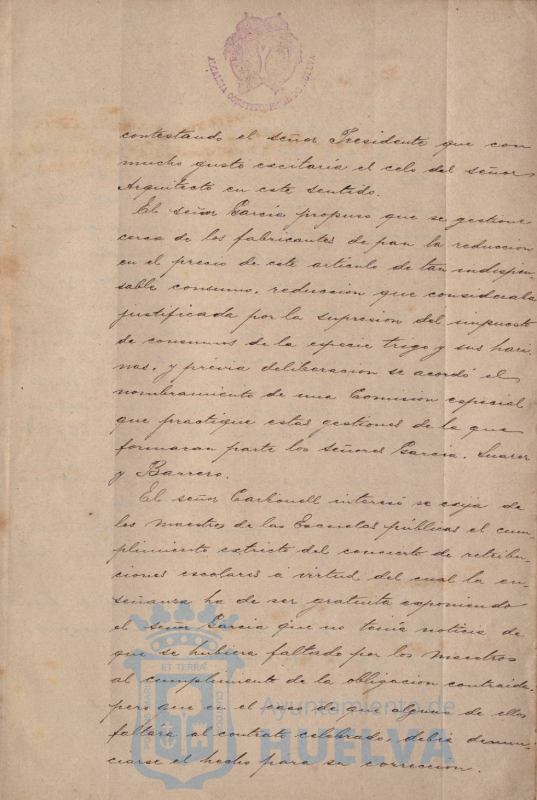 ALCALDIA CONSTITUCIONAL DE HUELVA
contestando el señor Presidente que con
mucho gusto escitaria el celo del señor
Arquitecto en este sentido.
El señor Garcia propuso que se gestione
cerca de los fabricantes de pan la reduccion
en el precio de este articulo de tan indispen-
sable consumo, reduccion que consideraba
justificada por la supresion del impuesto
de consumos de la especie trigo y sus hari-
nas, y prévia deliberacion se acordó el
nombramiento de una Comision especial
que practique estas gestiones de la que
formaran parte los señores Garcia, Suarez
y Barrero.
El señor Carbonell interesó se exija de
los maestros de las Escuelas públicas el cum-
plimiento estricto del concierto de retribu-
ciones escolares á virtud del cual la en-
señanza ha de ser gratuita esponiendo
el señor Garcia que no tenia noticia de
que se hubiera faltado por los maestros
al cumplimiento de la obligacion contraida,
pero que en el caso de que alguno de ellos
faltara al contrato celebrado, debia denun-
ciarse el hecho para su correccion.
ET TERRÆ
Ayuntamiento de
HUELVA